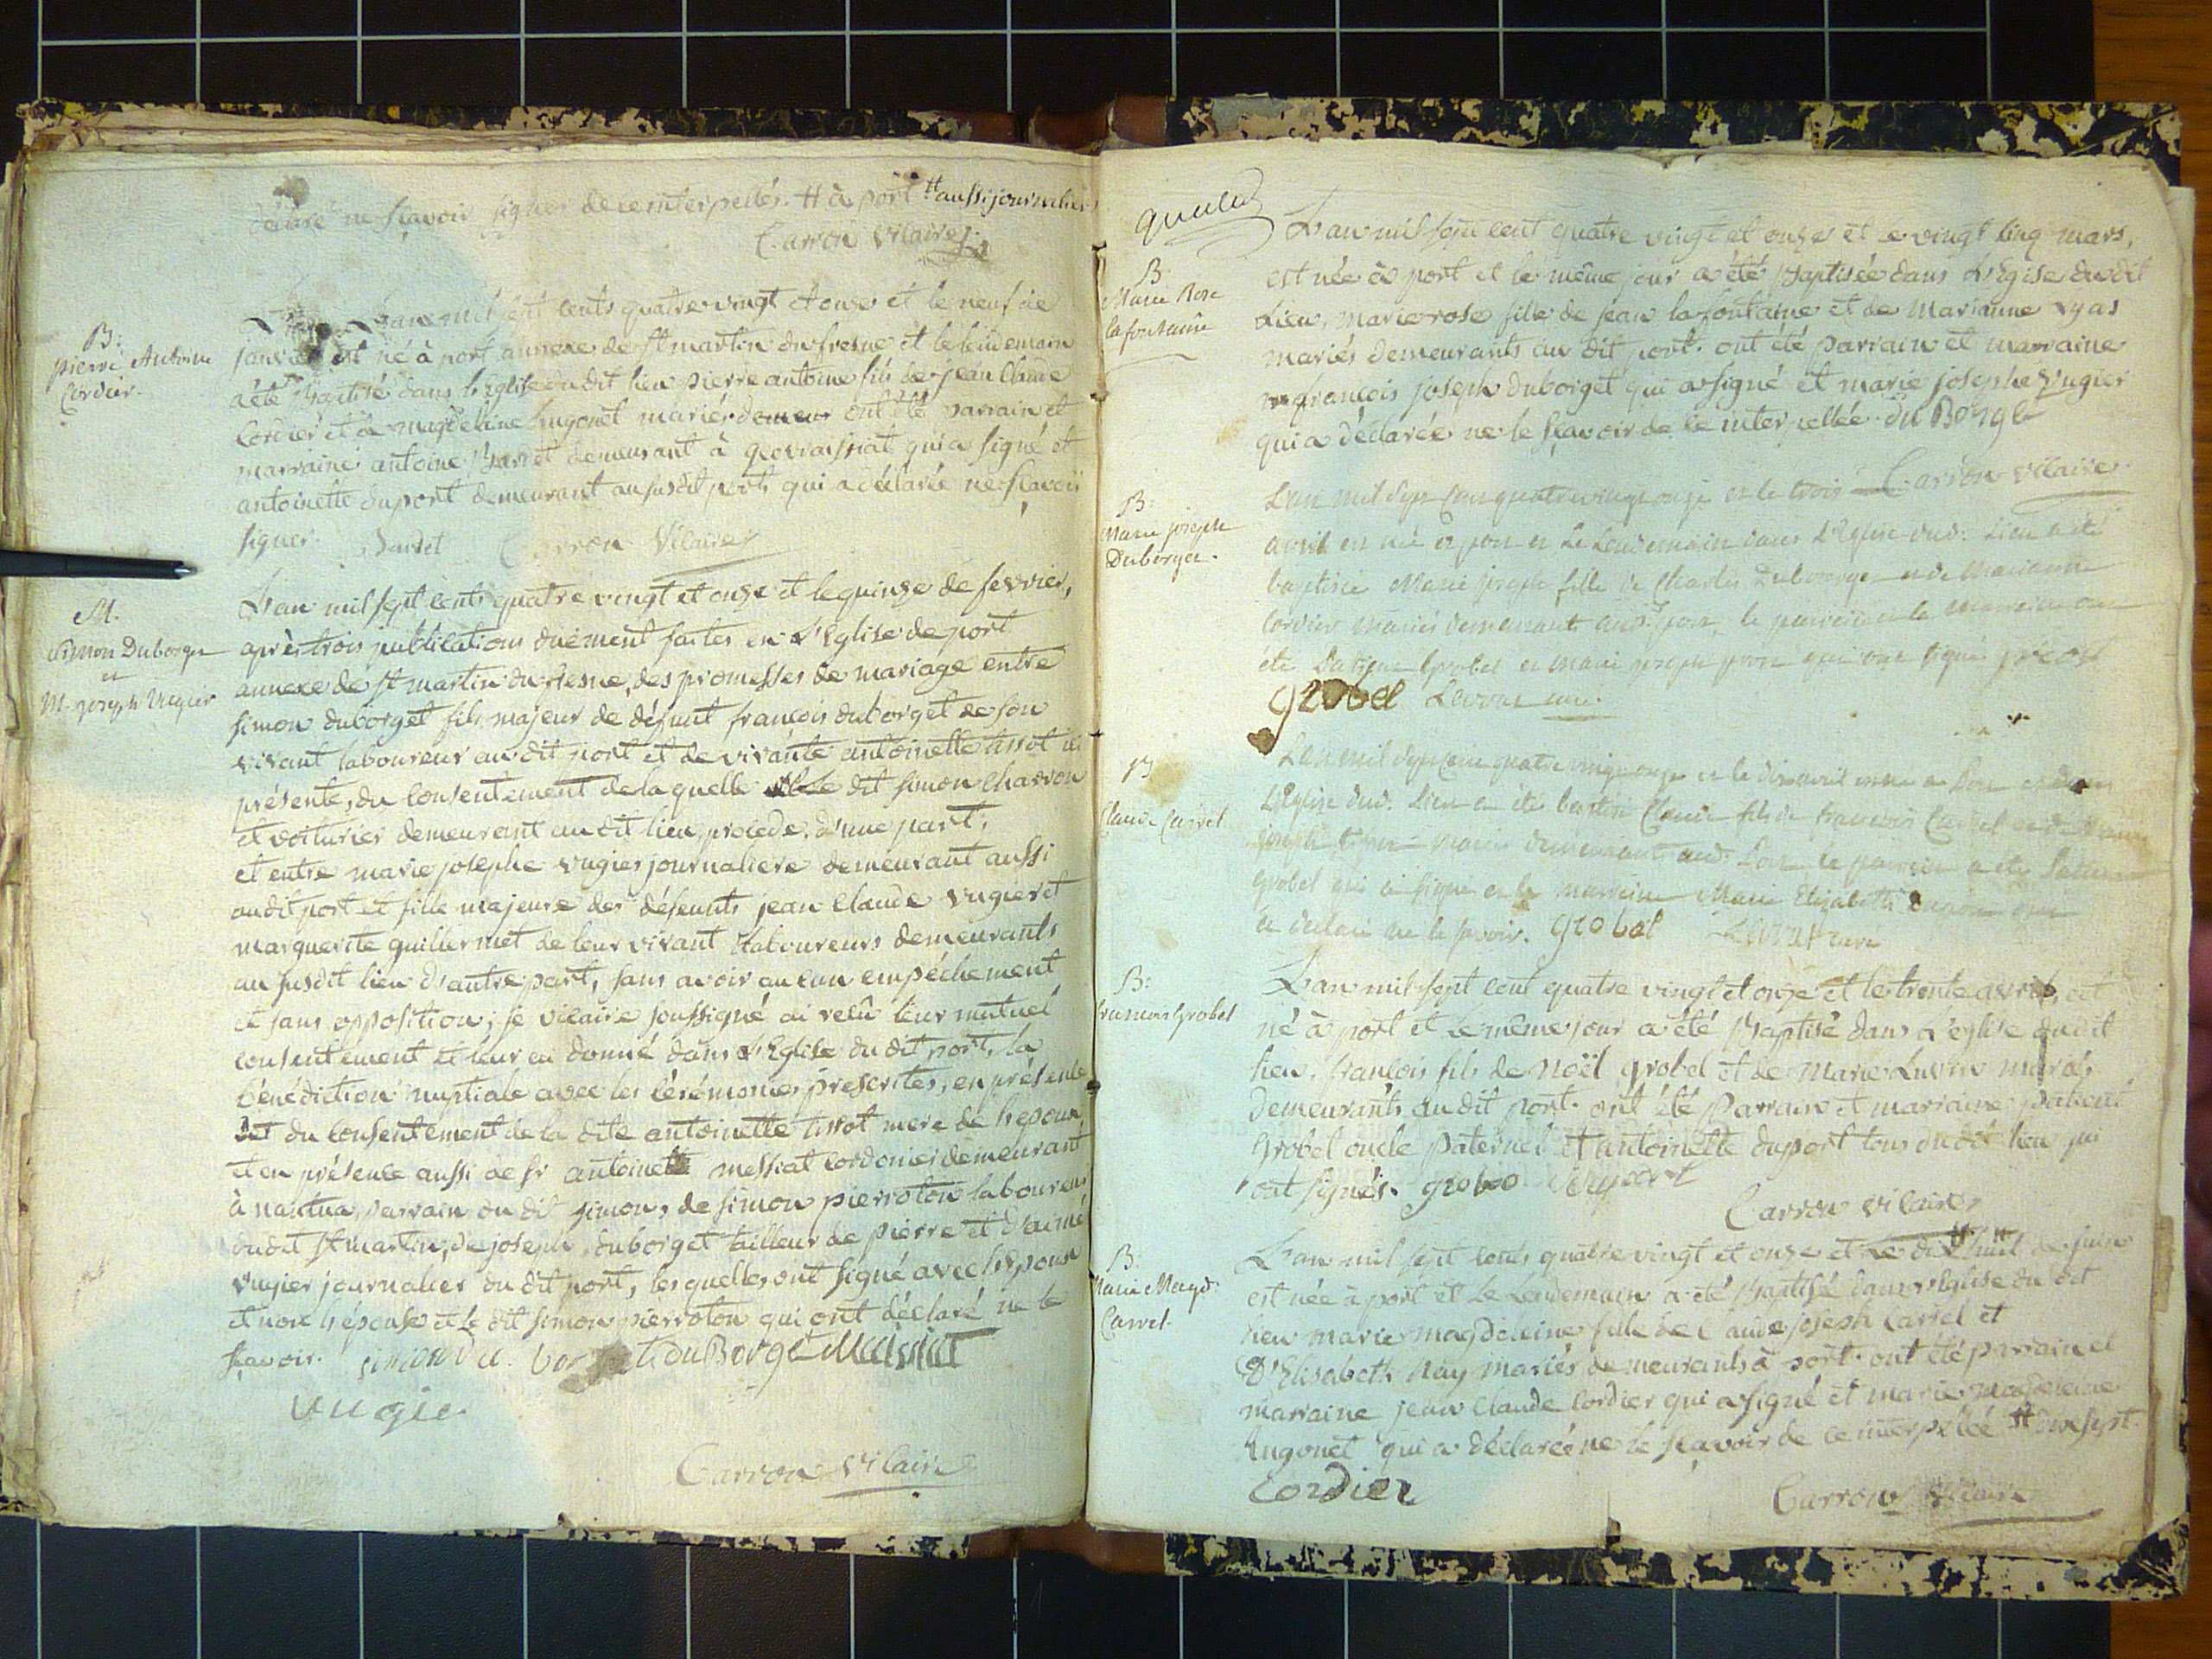 déclaré ne sçavoir signer de ce interpellés. # à port # aussi journalier
Carron vicaire
B:
pierre Antoine
Cordier.
L'an mil sept cents quatre vingt et onze et le neuf de
janvier est né à port annexe de st martin du fresne et le lendemain
a été Baptisé dans l'Eglise du dit lieu pierre antoine fils de jean Claude
Cordier et de magdeleine hugonet mariés demeur ont été parrain et
marraine antoine demeurant à geovraissiat qui a signé et
antoinette duport demeurant au susdit port qui a déclarée ne sçavoir
signer. Carron Vicaire
M.
Simon Duborget
et
M. joseph Vugier
L'an mil sept cents quatre vingt et onze et le quinze de fevrier,
après trois publications duement faites en L'Eglise de port
annexe de st martin du fresne, des promesses de mariage entre
simon duborget fils majeur de défunt françois duborget de son
vivant laboureur au dit port et de vivante antoinette tissot ici
présente, du consentement de laquelle le dit simon charron
et voiturier demeurant au dit lieu, procede, d'une part;
et entre marie josephe vugier journaliere demeurant aussi
au dit port et fille majeure des défeunts jean claude vugier et
marguerite guillermet de leur vivant laboureurs demeurants
au susdit lieu d'autre part, sans avoir aucun empéchement
et sans opposition; je vicaire soussigné ai reçû leur mutuel
consentement et leur ai donné dans L'Eglise du dit port, la
bénédiction nuptiale avec les cérémonies prescrites, en présence
et du consentement de la dite antoinette tissot mere de l'epoux
et en présence aussi de sr antoine messiat cordonier demeurant
à nantua, parrain du dit simon, de simon pierroton laboureur
du dit st martin, de joseph duborget tailleur de pierre et d'aimé
vugier journalier du dit port, les quelles ont signé avec l'époux
et non l'épouse et le dit simon pierroton qui ont déclaré ne le
sçavoir. simon du borget duBorget Messiat
vugie
Carron vicaire
B
Marie Rose
la fontaine
L'an mil sept cent quatre vingt et onze et le vingt cinq mars,
est née à port et le même jour a été Baptisée dans L'Eglise du dit
Lieu, marie rose fille de jean lafontaine et de Marianne
mariés demeurants au dit port. ont été parrain et marraine
françois joseph duborget qui a signé et marie josephe vugier
qui a déclarée ne le sçavoir de ce interpellée. duBorget
Carron vicaire
B:
Marie joseph
Duborget.
L'an mil sept cent quatre vingt onze et le trois
avril est née à port et le Lendemain dans L'Eglise dud: Lieu a été
baptisée Marie joseph fille de Charles Duborget et de Marianne
Cordier mariés demeurants aud: port, le parrain et la marraine ont
été Grobet et Marie joseph qui ont signé
grobel
B
Claude Carret
L'an mil sept cent quatre vingt onze et le dix avril est né à Port et dans
L'Eglise dud. Lieu a été baptisé Claude fils de françois Carret et de Marie
joseph mariés demeurants aud. Port, le parrain a été
grobel qui a signé et la marraine Marie Elizabeth
a déclaré ne le savoir. grobel curé
B:
francois Grobel
L'an mil sept cent quatre vingt et onze et le trente avril, est
né à port et Le même jour a été Baptisé dans L'eglise du dit
lieu, françois fils de Noël grobel et de Marie mariés
demeurants au dit port. ont été Parrain et marraine
grobel oncle paternel et antoinette duport tous du dit lieu qui
ont signés. duport
Carron vicaire
B:
Marie Magd:
Carret
L'an mil sept cents quatre vingt et onze et Le dix # huit de juin
est née à port et Le Lendemain a été Baptisé dans L'Eglise du dit
lieu marie magdeleine fille de Claude joseph Carret et
D'Elisabeth Nay mariés demeurants à port. ont été parrain et
marraine jean Claude Cordier qui a signé et marie magdeleine
hugonet qui a déclarée ne le sçavoir de ce interpellée # dixsept.
Cordier
Carron vicaire